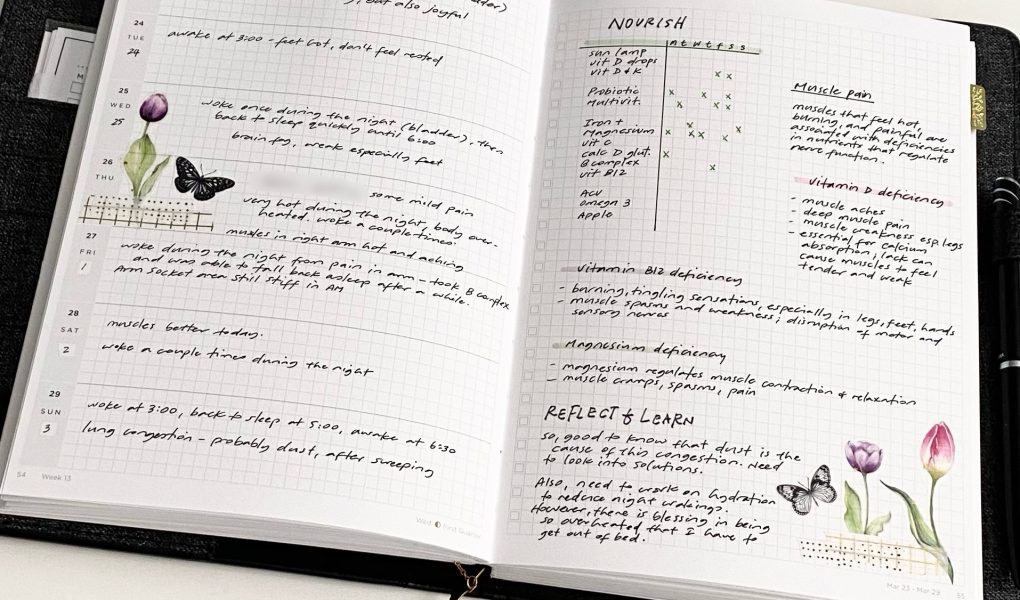 der)
, but also joyful
24
TUE
24
awake at 3:00 - feet hot, don't feel rested
25
WED
25
woke once during the night (bladder), then
back to sleep quickly until 6:00
brain fog, weak especially feet
26
THU
some mild pain
very hot during the night, body over-
heated. woke a couple times.
muscles in right arm hot and aching
27
FRI
1
woke during the night from pain in arm - took B complex
and was able to fall back asleep after a while.
Arm socket area still stiff in AM
28
SAT
2
muscles better today.
woke a couple times during the night
29
SUN
3
woke at 3:00, back to sleep at 5:00, awake at 6:30
lung congestion - probably dust, after sweeping
54 Week 13
Wed. First Quarter
NOURISH
t w t f s s
sun lamp
vit D drops
vit D & K
Probiotic
Multivit.
Iron +
Magnesium
vit C
calc D glut.
B complex
vit B12
ACV
omega 3
Apple
Muscle pain
muscles that feel hot,
burning, and painful are
associated with deficiencies
in nutrients that regulate
nerve function.
Vitamin D deficiency
- muscle aches
- deep muscle pain
- muscle weakness esp. legs
- essential for calcium
absorption; lack can
cause muscles to feel
tender and weak
Vitamin B12 deficiency
- burning, tingling sensations, especially in legs, feet, hands
- muscle spasms and weakness; disruption of motor and
sensory nerves
Magnesium deficiency
- magnesium regulates muscle contraction & relaxation
- muscle cramps, spasms, pain
REFLECT & LEARN
so, good to know that dust is the
cause of this congestion. Need
to look into solutions.
Also, need to work on hydration
to reduce night wakings.
However, there is blessing in being
so overheated that I have to
get out of bed.
Mar 23 - Mar 29 55